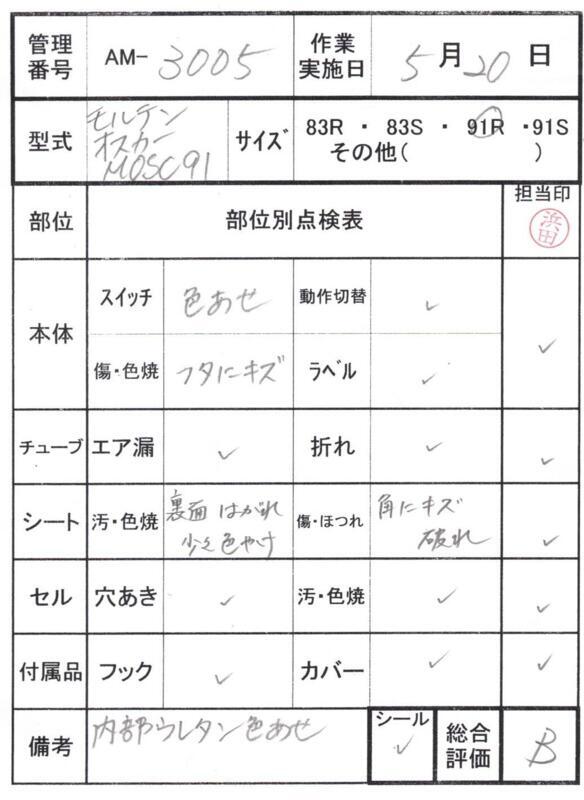 管理番号 AM-3005 作業実施日 5月20日
型式 モルテン オスカー MOSC91 サイズ 83R ・ 83S ・ 91R ・91S
その他( )
担当印
部位 部位別点検表 浜田
本体 スイッチ 色あせ 動作切替 ✓ ✓
傷・色焼 フタにキズ ラベル ✓
チューブ エア漏 ✓ 折れ ✓ ✓
シート 汚・色焼 裏面はがれ 少々色やけ 傷・ほつれ 角にキズ 破れ ✓
セル 穴あき ✓ 汚・色焼 ✓ ✓
付属品 フック ✓ カバー ✓ ✓
備考 内部ウレタン色あせ シール ✓ 総合評価 B